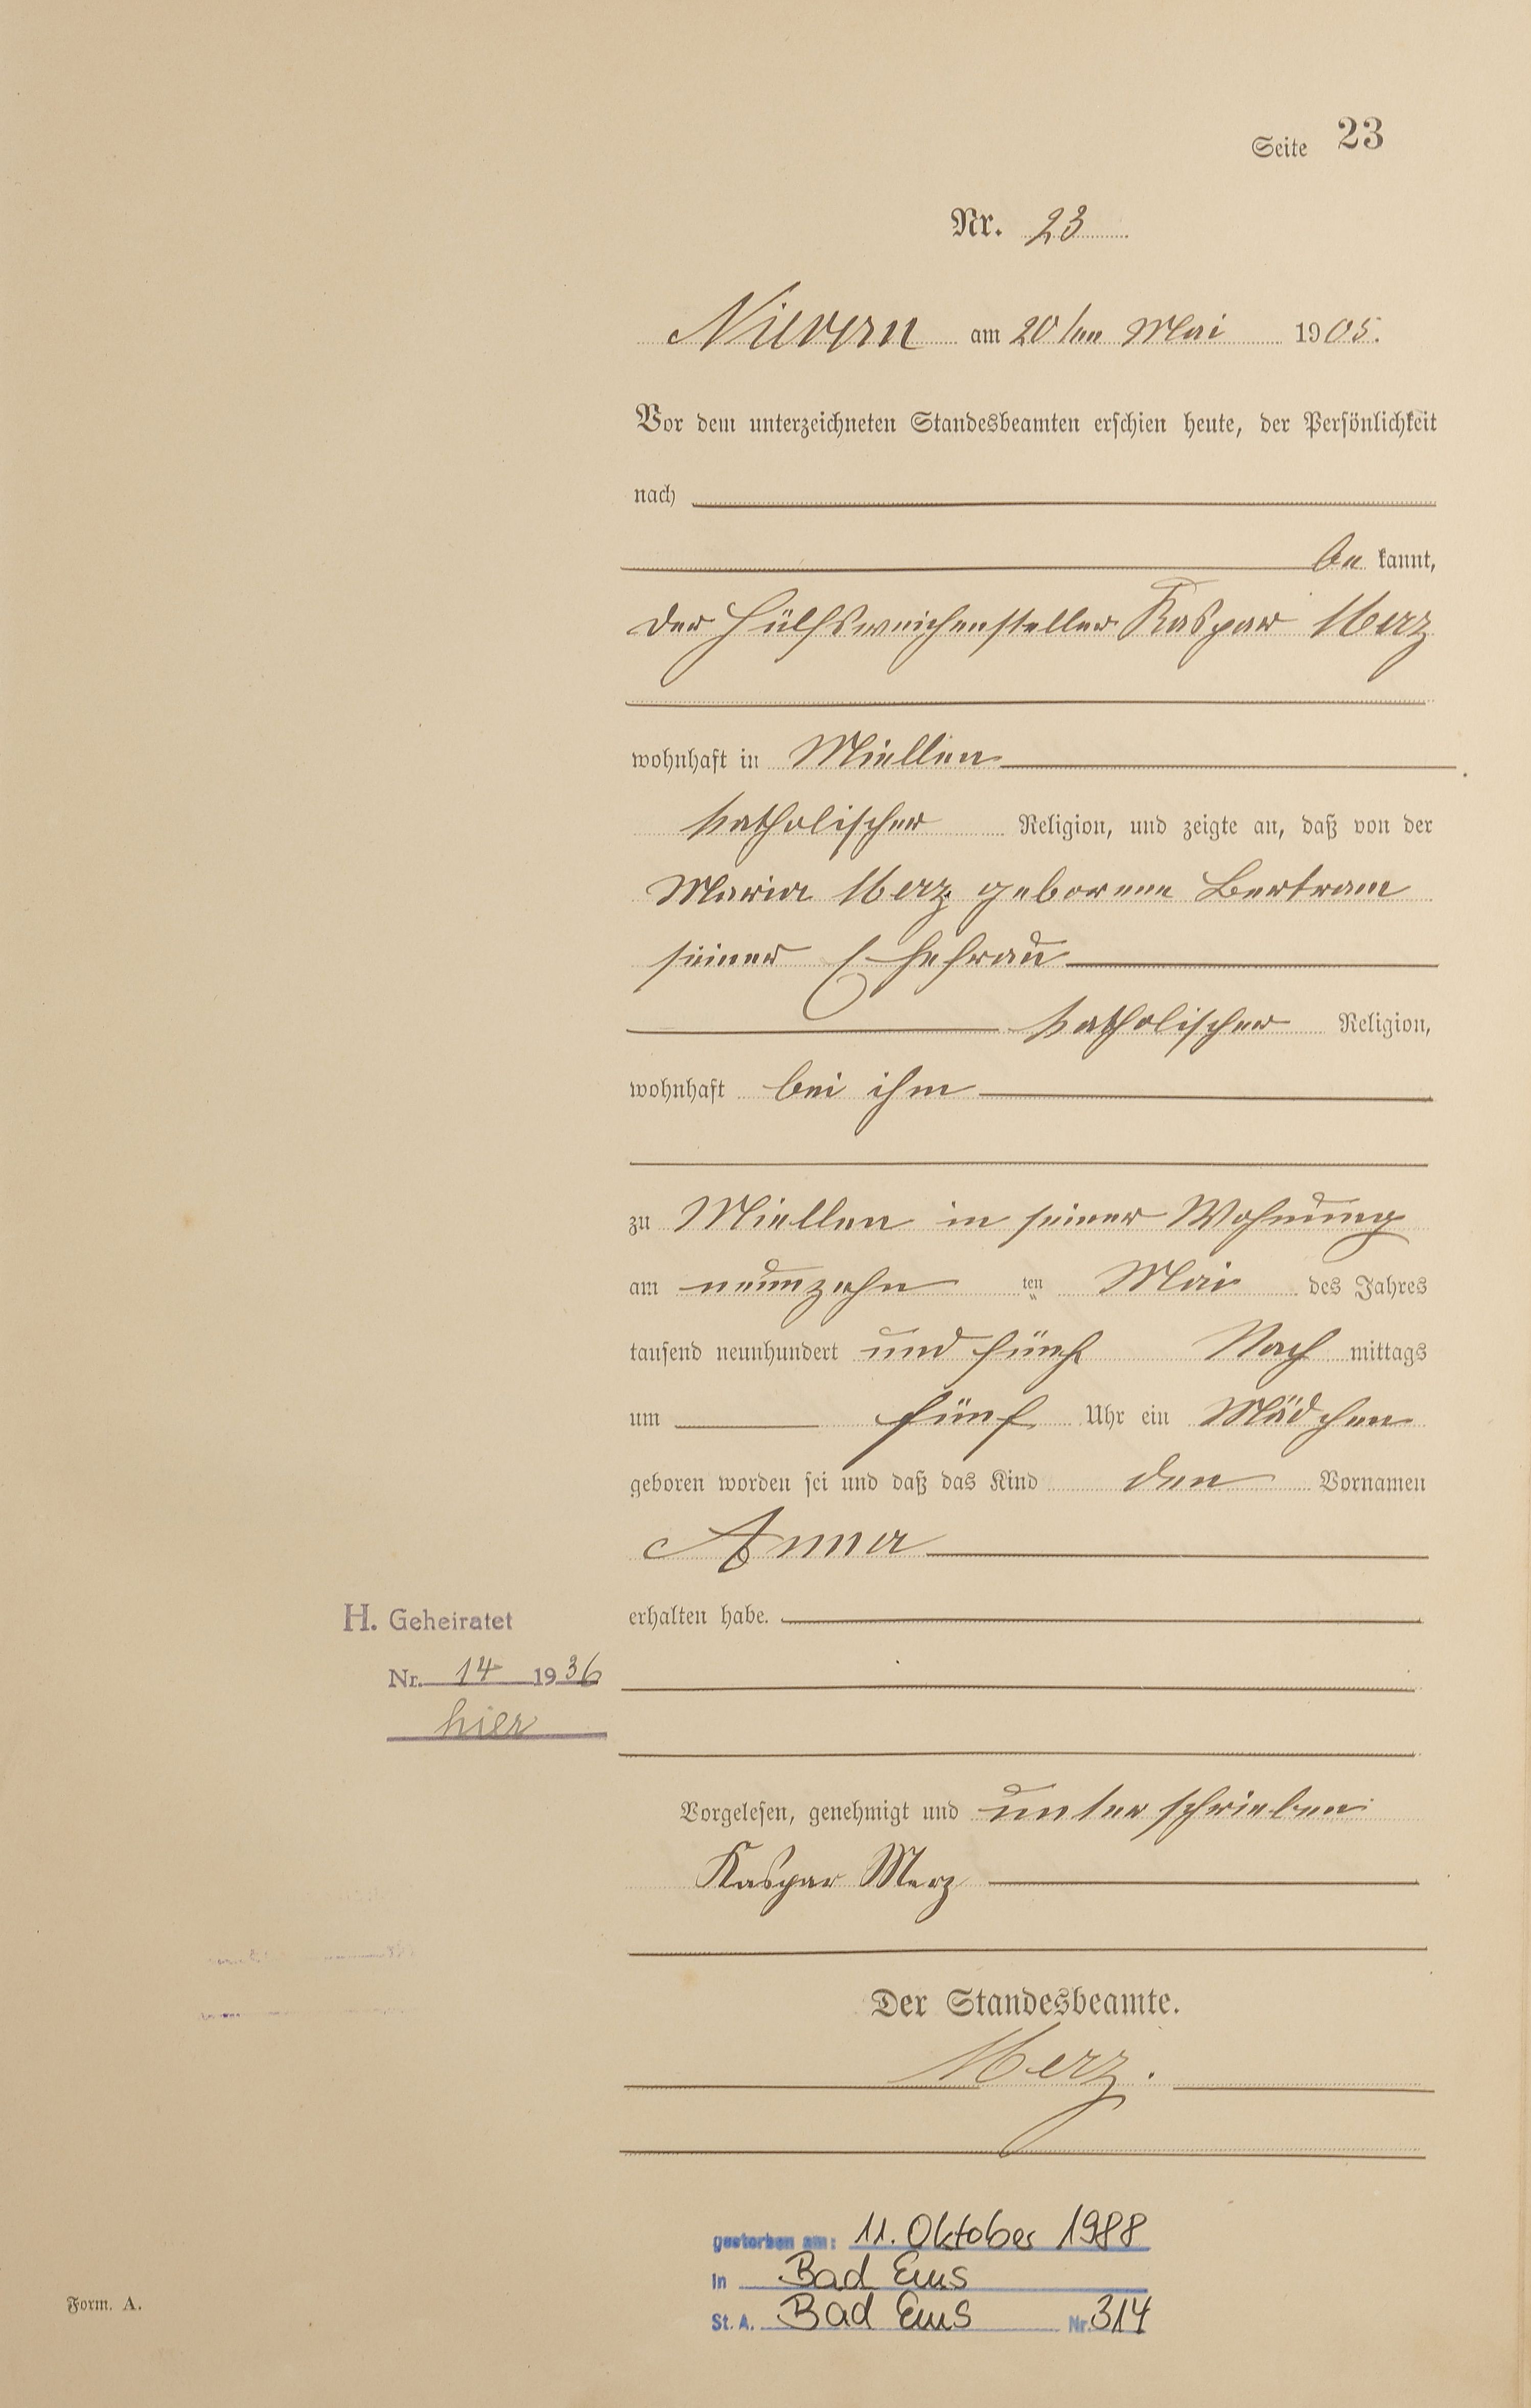 Seite 23
Nr. 23
Nievern am 20ten Mai 1905.
Vor dem unterzeichneten Standesbeamten erschien heute, der Persönlichkeit
nach
be kannt,
der Hülfsweichensteller Kaspar Merz
wohnhaft in Miellen
katholischer Religion, und zeigte an, daß von der
Maria Merz geborene Bertram
seiner Ehefrau
katholischer Religion,
wohnhaft bei ihm
zu Miellen in seiner Wohnung
am neunzehn ten Mai des Jahres
tausend neunhundert und fünf Nach mittags
um fünf Uhr ein Mädchen
geboren worden sei und daß das Kind den Vornamen
Anna
erhalten habe.
H. Geheiratet
Nr. 14 1936
hier
Vorgelesen, genehmigt und unterschrieben
Kaspar Merz
Der Standesbeamte.
Merz.
gestorben am: 11. Oktober 1988
in Bad Ems
St. A. Bad Ems Nr. 314
Form. A.